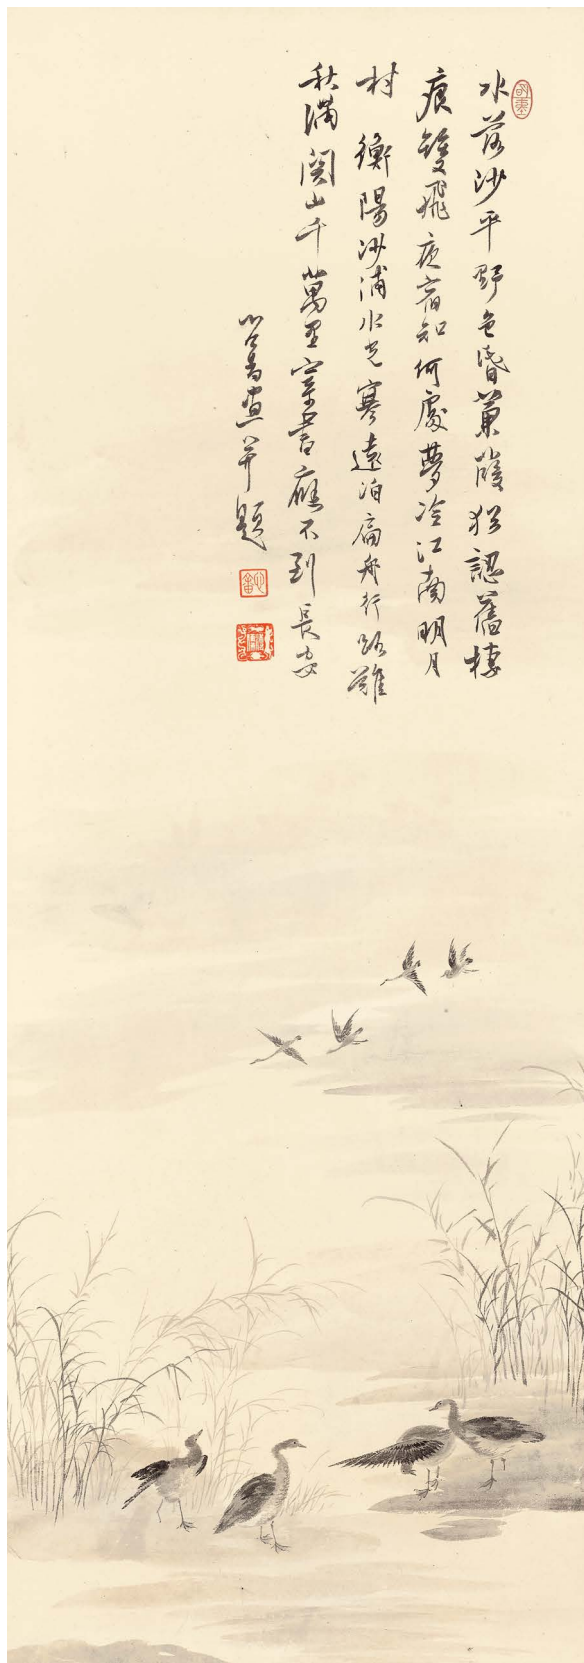 水落沙平野色昏蒹葭猶認舊棲
痕雙飛夜宿知何處夢冷江南明月
村 衡陽沙浦水光寒遠泊扁舟行路難
秋滿關山千萬里寄書應不到長安
心畬畫並題
心畬